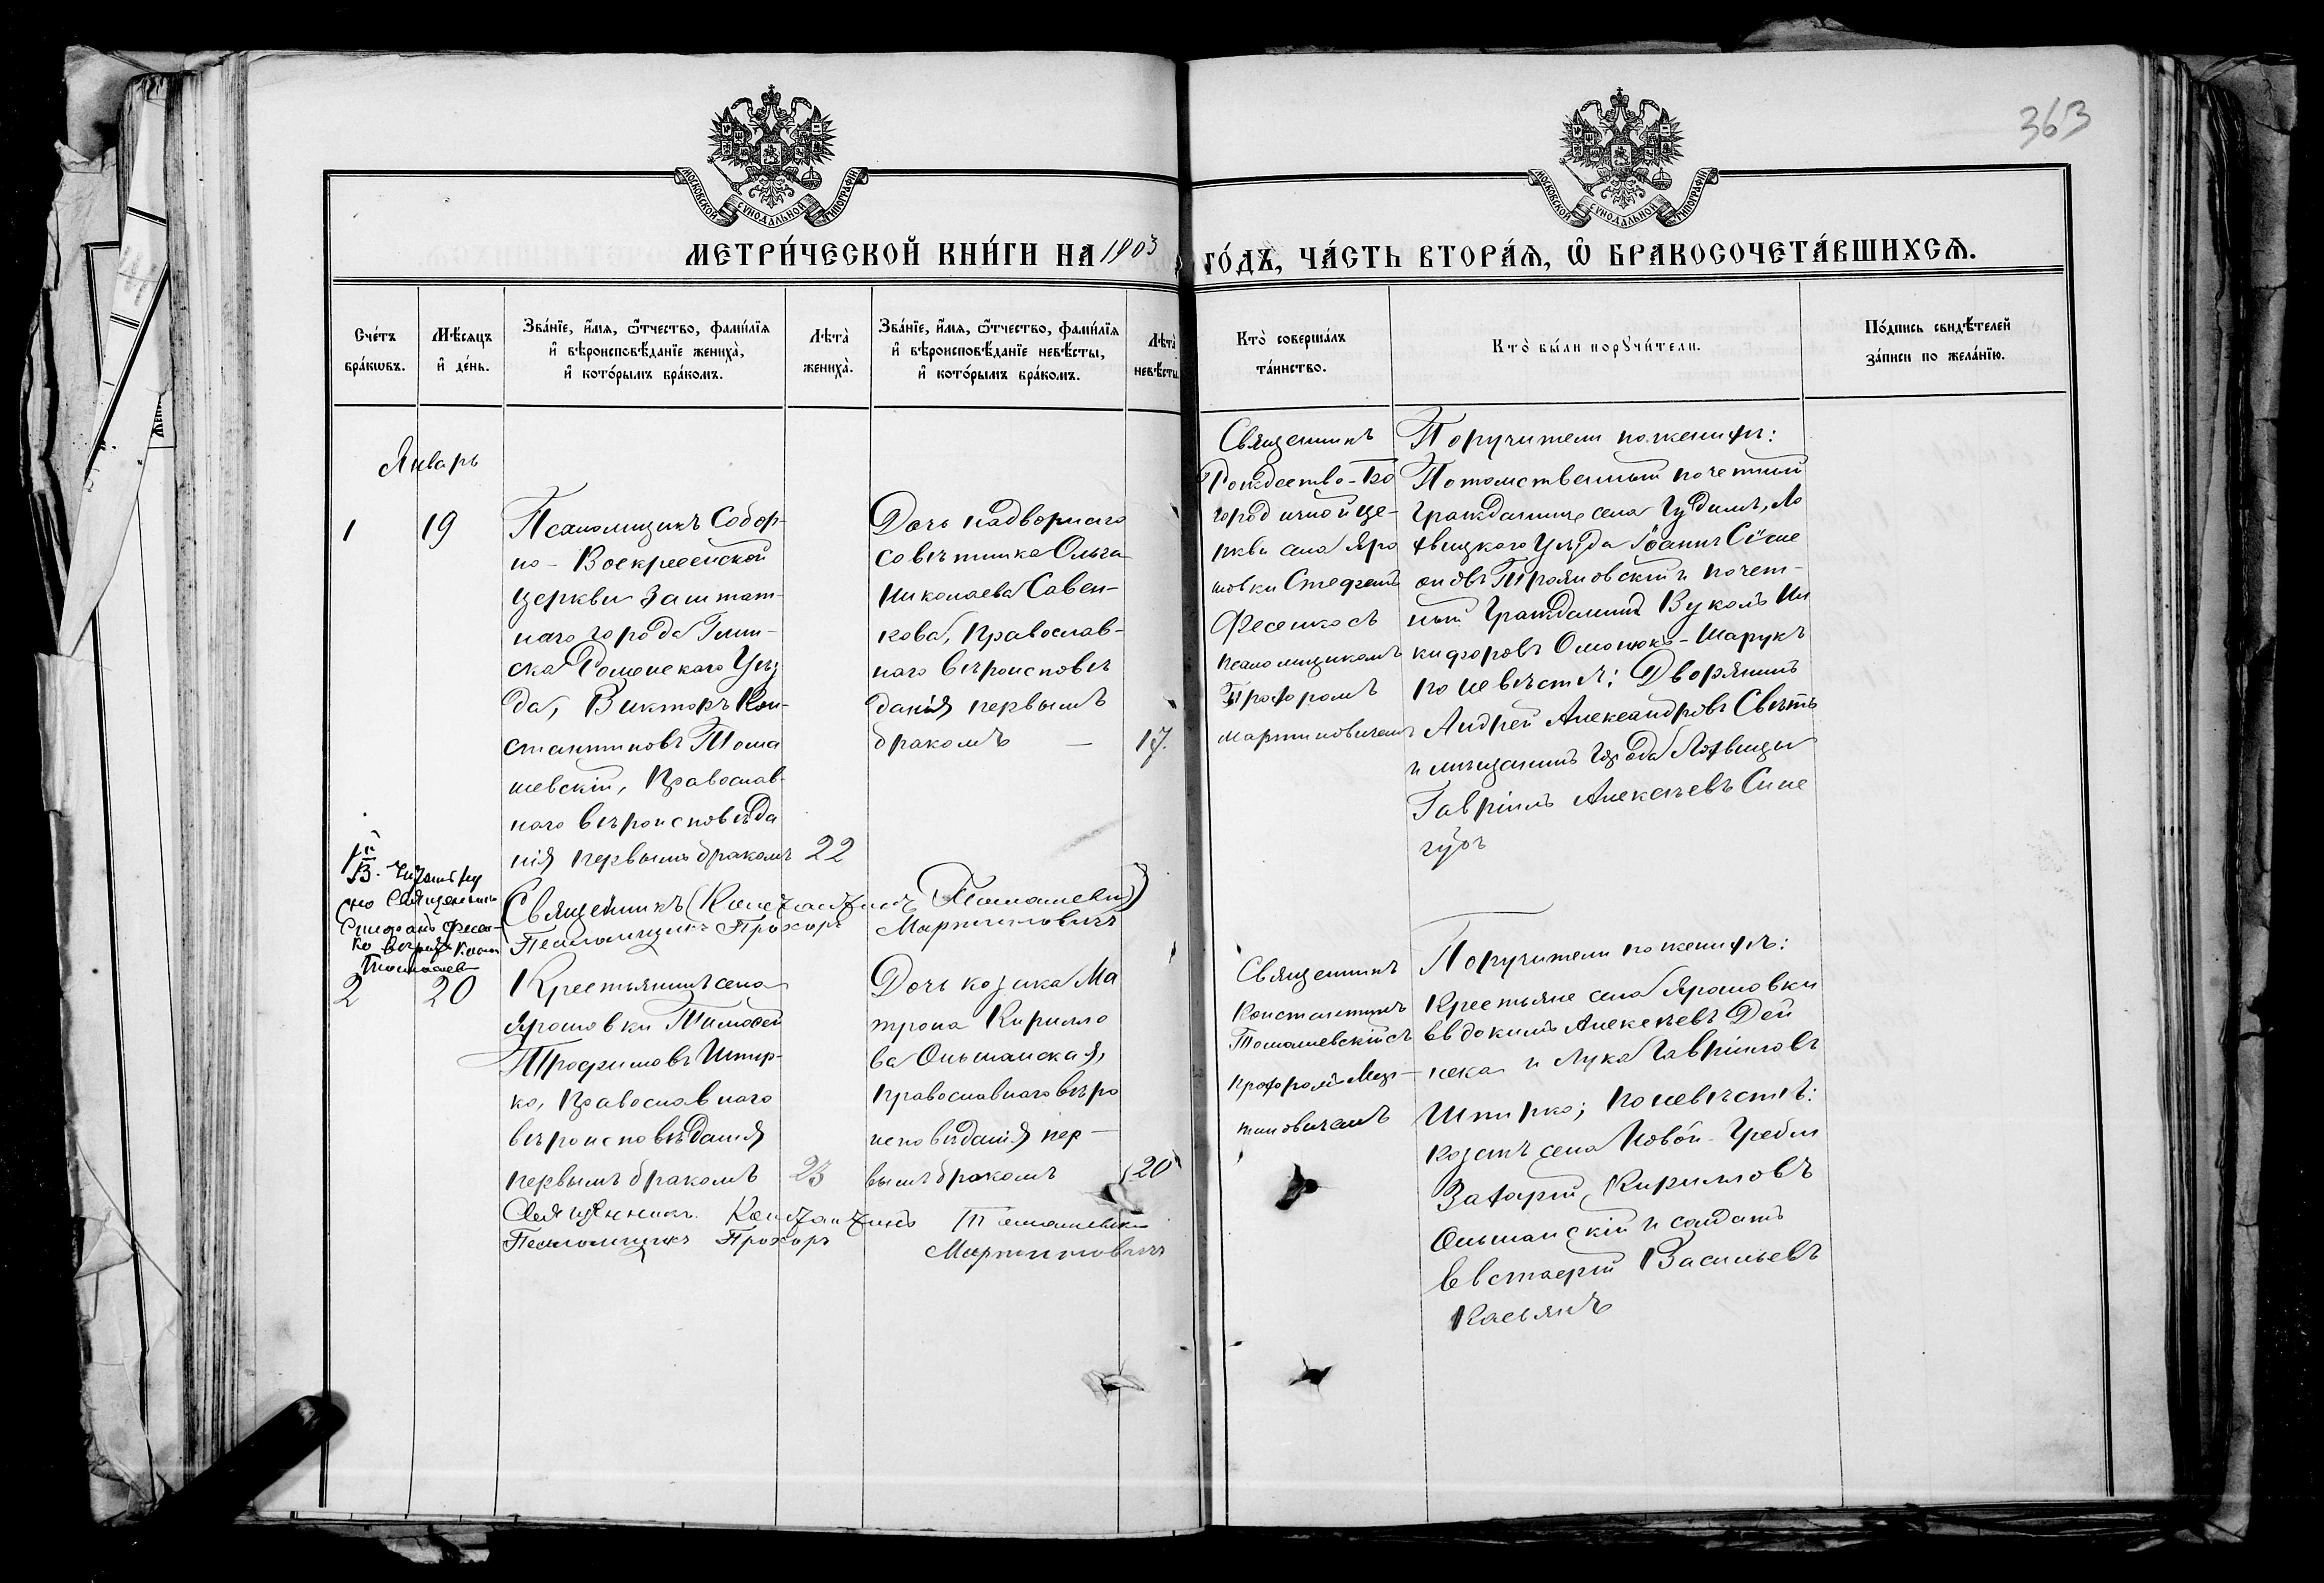 363
МОСКОВСКОЙ СѴНОДАЛЬНОЙ ТИПОГРАФІИ
МОСКОВСКОЙ СѴНОДАЛЬНОЙ ТИПОГРАФІИ
МЕТРИ́ЧЕСКОЙ КНИ́ГИ НА 1903 ГО́ДЪ, ЧА́СТЬ ВТОРА́Я, Ѽ БРАКОСОЧЕТА́ВШИХСѦ.
Сче́тъ бра́кѡвъ.
Мѣ́сяцъ и҆ де́нь.
Зва́нїе, и҆́мя, ѻ҆́тчество, фами́лїя
и҆ вѣроисповѣ́данїе жениха̀,
и҆ кото́рымъ бра́комъ.
Лѣта̀ жениха̀.
Зва́нїе, и҆́мя, ѻ҆́тчество, фами́лїя
и҆ вѣроисповѣ́данїе невѣ́сты,
и҆ кото́рымъ бра́комъ.
Лѣта̀ невѣ́сты.
Кто̀ соверша́лъ
та́инство.
Кто̀ бы́ли порꙋчи́тели.
По́дпись свидѣ́телей
за́писи по жела́нїю.
Январь
1
19
Псаломщикъ Собор-
но-Воскресенской
церкви Заштат-
наго города Глин-
ска Роменскаго Уѣз
да, Викторъ Кон-
стантиновъ Тома
шевскій, Православ-
наго вѣроисповѣда
нія первымъ бракомъ
22
Дочь надворнаго
совѣтника Ольга
Николаева Савен-
кова, Православ-
наго вѣроисповѣ
данія первымъ
бракомъ —
17.
Священникъ
Рождество-Бо
городичной це-
ркви села Яро
шовки Стефанъ
Фесенко съ
псаломщикомъ
Прохоромъ
Мартиновичемъ
Поручители по женихѣ:
Потомственный почетный
Гражданинъ села Гудимъ, Ло
хвицкаго Уѣзда Іоаннъ Симе
оновъ Трояновскій и почет-
ный Гражданинъ Вуколъ Ни
кифоровъ Омонюкъ-Шарукъ
по невѣстѣ: Дворянинъ
Андрей Александровъ Свѣтъ
и мѣщанинъ города Лохвицы
Гавріилъ Алексѣевъ Сине
губъ
Священникъ (Константинъ Томашевскій)
Псаломщикъ Прохоръ Мартиновичъ
2
20
Крестьянинъ села
Ярошовки Тимофей
Трофимовъ Шпир-
ко, Православнаго
вѣроисповѣданія
первымъ бракомъ
23
Дочь козака Ма
трона Кирилло
ва Ольшанская,
православнаго вѣро
исповѣданія пер-
вымъ бракомъ
20
Священникъ
Константинъ
Томашевскій съ
Прохоромъ Мар-
тиновичемъ
Поручители по женихѣ:
Крестьяне села Ярошовки
Евдокимъ Алексѣевъ Дей
нека и Лука Гавріиловъ
Шпирко; по невѣстѣ:
козакъ села Новой-Гребли
Захарій Кирилловъ
Ольшанскій и солдатъ
Евстафій Васильевъ
Касьянъ
Священникъ Константинъ Томашевскій
Псаломщикъ Прохоръ Мартиновичъ